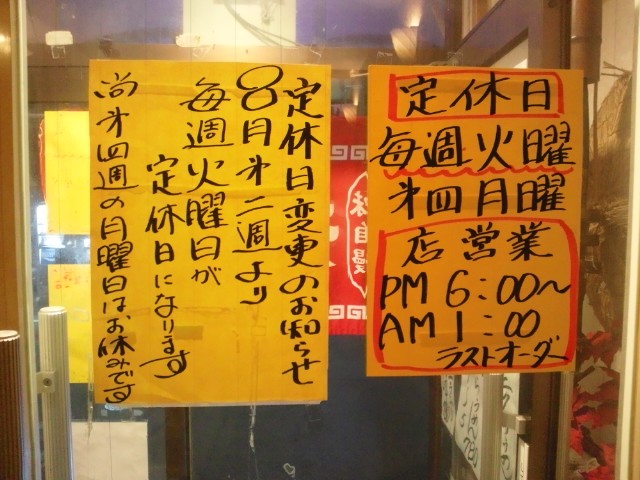 定休日変更のお知らせ
8月才二週より
毎週火曜日が
定休日になります
尚才四週の月曜日はお休みです
定休日
毎週火曜
才四月曜
店営業
PM 6:00～
AM 1:00
ラストオーダー
味自慢